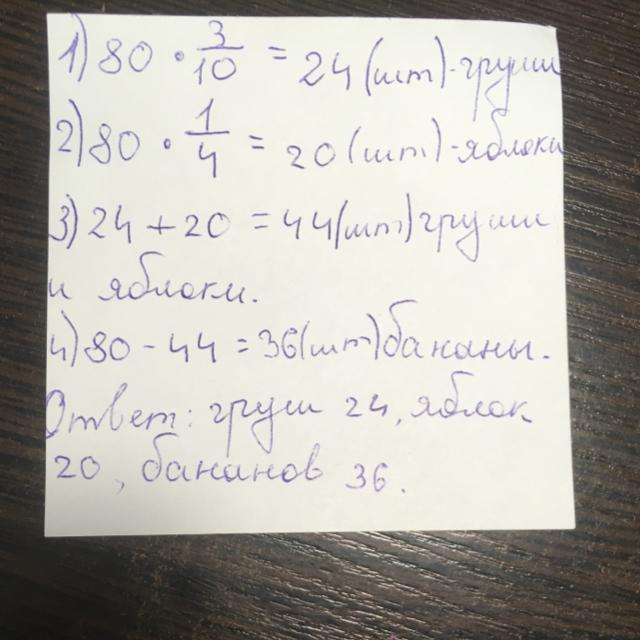 1) 80 · 3/10 = 24 (шт) - груши
2) 80 · 1/4 = 20 (шт) - яблоки
3) 24 + 20 = 44 (шт) груши
и яблоки.
4) 80 - 44 = 36 (шт) бананы.
Ответ: груш 24, яблок
20, бананов 36.